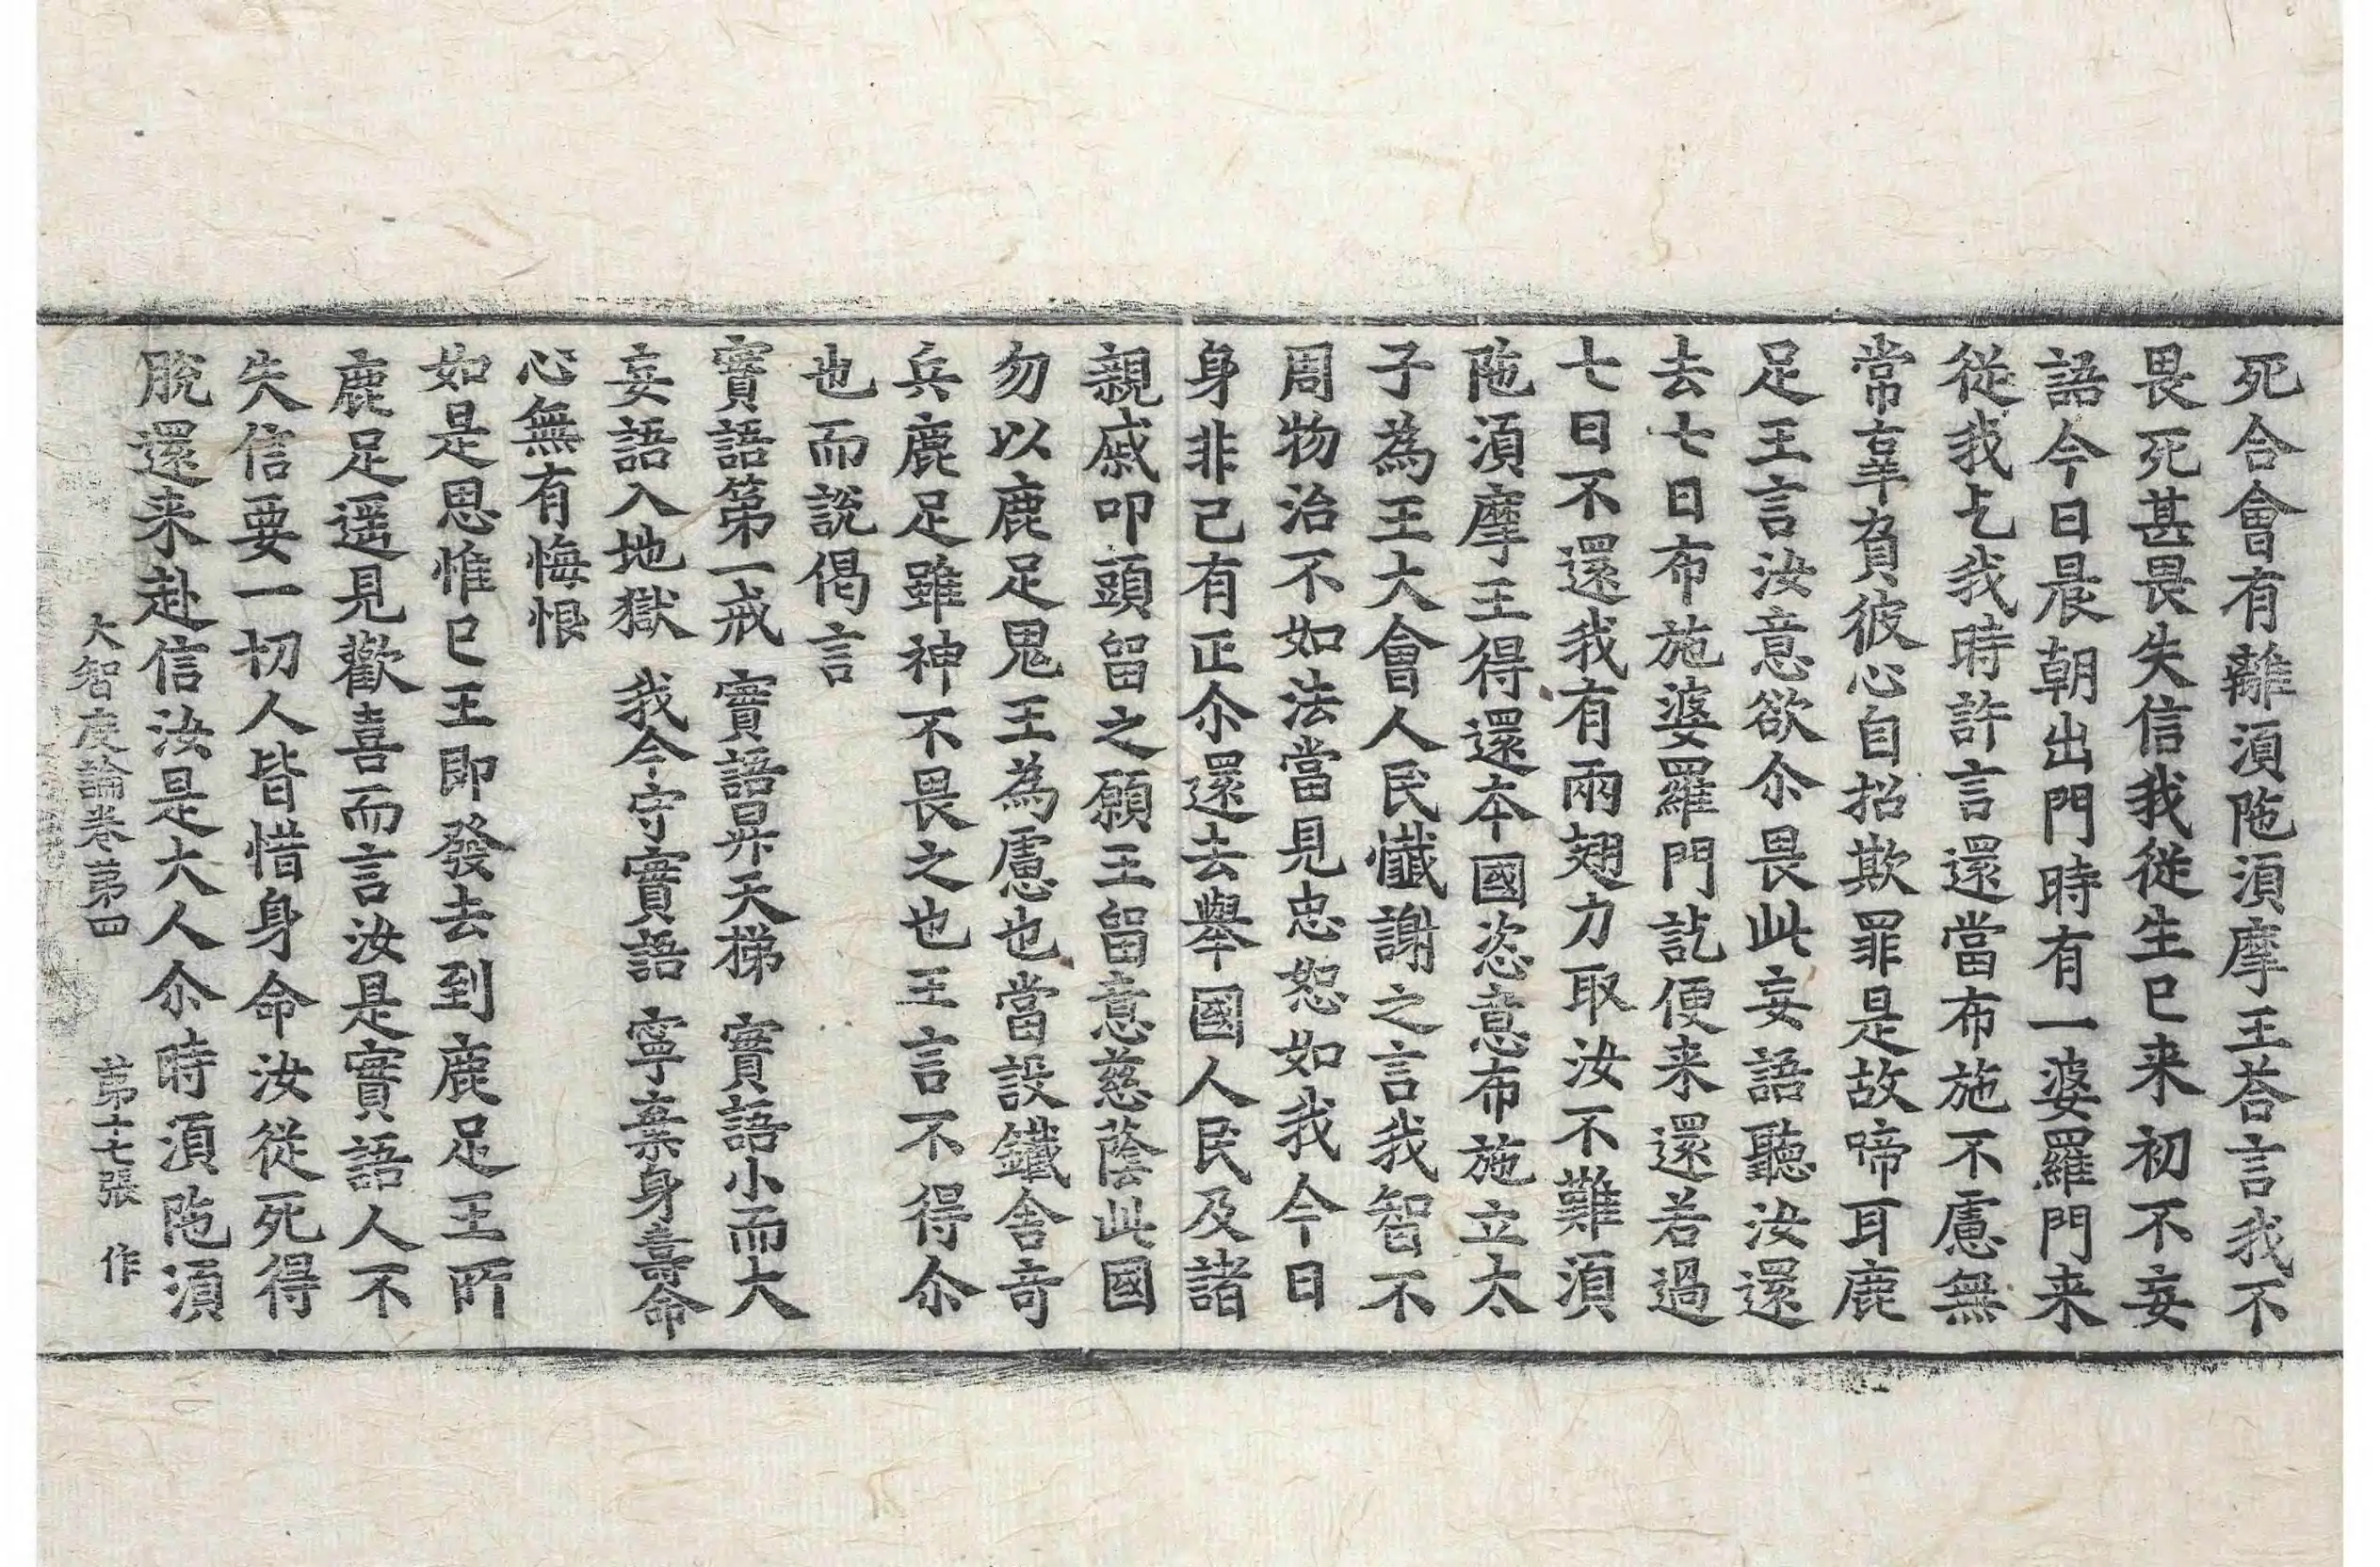 死合會有離湏陁湏摩王荅言我不
畏死甚畏失信我從生已来初不妄
語今日晨朝出門時有一婆羅門来
從我乞我時許言還當布施不慮無
常辜負彼心自招欺罪是故啼耳鹿
足王言汝意欲尒畏此妄語聽汝還
去七日布施婆羅門訖便来還若過
七日不還我有兩翅力取汝不難湏
陁湏摩王得還本國恣意布施立太
子為王大會人民懺謝之言我智不
周物治不如法當見忠恕如我今日
身非己有正尒還去舉國人民及諸
親戚叩頭留之願王留意慈蔭此國
勿以鹿足鬼王為慮也當設鐵舍奇
兵鹿足雖神不畏之也王言不得尒
也而說偈言
實語苐一戒 實語昇天梯 實語小而大
妄語入地獄 我今守實語 寧棄身壽命
心無有悔恨
如是思惟已王即發去到鹿足王所
鹿足遥見歡喜而言汝是實語人不
失信要一切人皆惜身命汝從死得
脫還来赴信汝是大人尒時湏陁湏
大智度論卷苐四 苐十七張 作